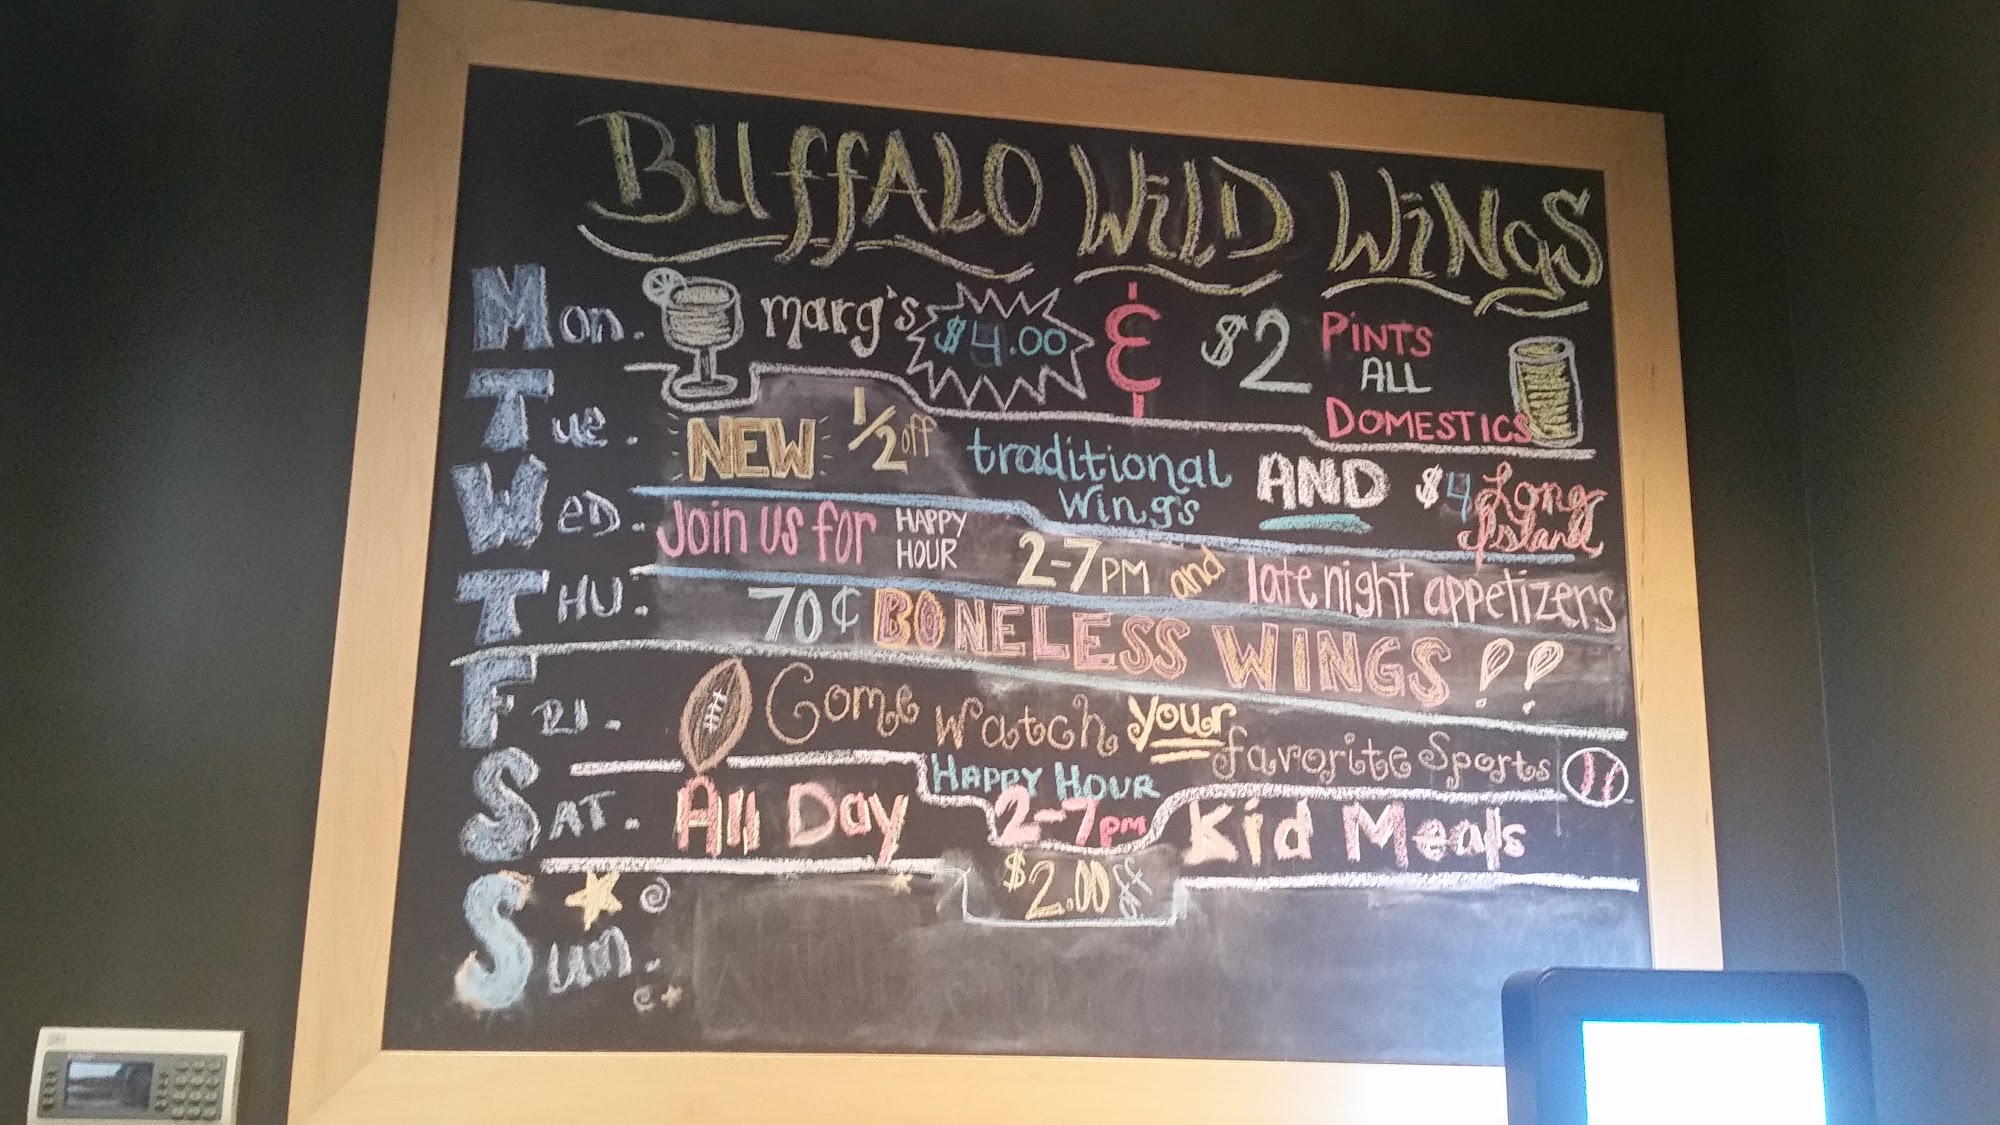 BUffALO WiLD WiNgS
Mon. marg's $4.00 & $2 PiNTS ALL DOMESTICS
Tue. NEW 1/2 off traditional wing's AND $4 Long Island
WED. Join us for HAPPY HOUR 2-7PM and late night appetizers
THU. 70¢ BONELESS WINGS!!
FRI. Come watch your favorite Sports
HAPPY HOUR 2-7pm
SAT. All Day Kid Meals
$2.00 off
Sun.